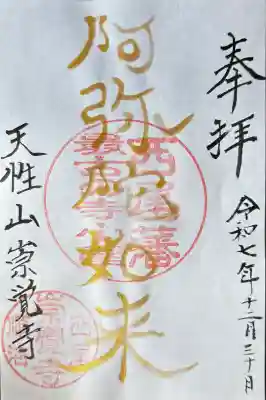 奉拝
令和七年十二月三十日
阿弥陀如来
天性山崇覚寺